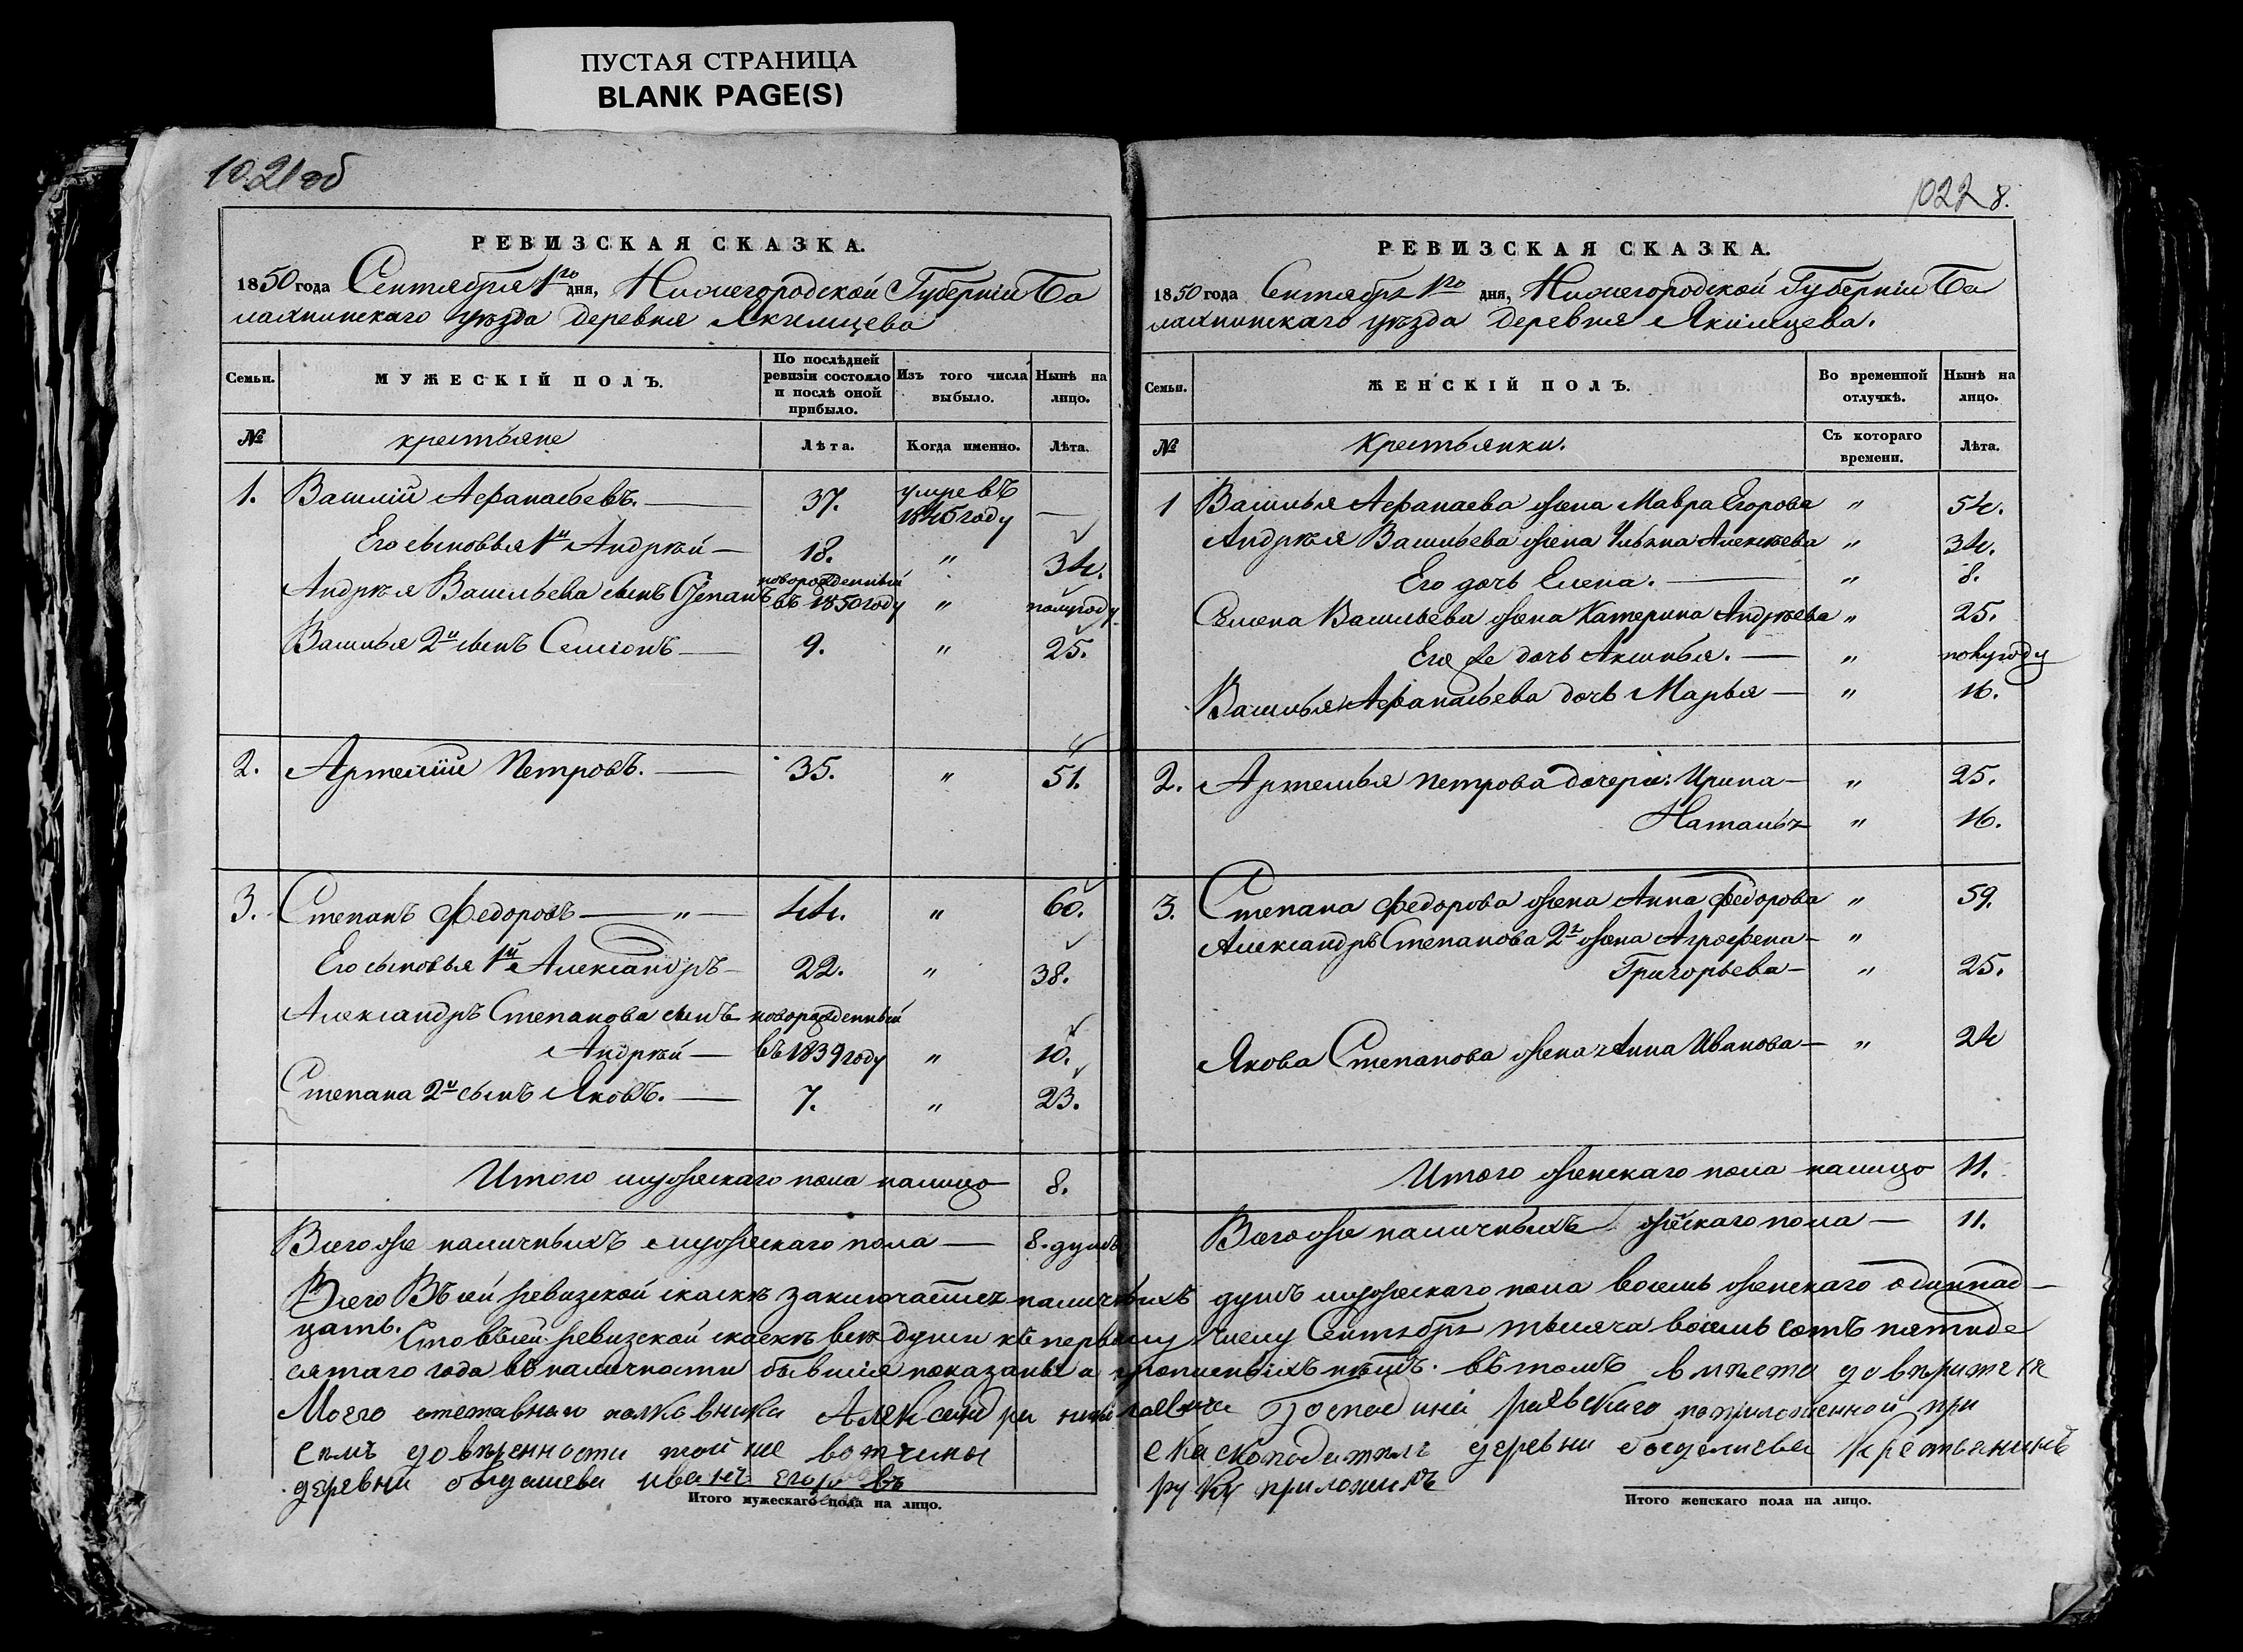 ПУСТАЯ СТРАНИЦА
BLANK PAGE(S)
1021 об
РЕВИЗСКАЯ СКАЗКА.
1850 года Сентября 1го дня, Нижегородской Губерніи Ба
лахнинскаго уѣзда деревня Якимцева
Семьи.
МУЖЕСКІЙ ПОЛЪ.
По послѣдней ревизіи состояло и послѣ оной прибыло.
Изъ того числа выбыло.
Нынѣ на лицо.
№ крестьяне Лѣта. Когда именно. Лѣта.
1. Василій Афанасьевъ. — 37. умре въ 1845 году —
Его сыновья 1й Андрѣй — 18. " 34.
Андрѣя Васильева сынъ Степанъ новорожденный въ 1850 году " полугоду
Василья 2й сынъ Семіонъ — 9. " 25.
2. Артемій Петровъ. — 35. " 51.
3. Степанъ Федоровъ — " — 44. " 60.
Его сыновья 1й Александръ — 22. " 38.
Александръ Степанова сынъ новорожденный
Андрѣй — въ 1839 году " 10.
Степана 2й сынъ Яковъ. — 7. " 23.
Итого мужескаго пола налицо 8.
Всего же наличныхъ мужескаго пола — 8. душъ
1022 8.
РЕВИЗСКАЯ СКАЗКА.
1850 года Сентября 1го дня, Нижегородской Губерніи Ба
лахнинскаго уѣзда деревня Якимцева.
Семьи.
ЖЕНСКІЙ ПОЛЪ.
Во временной отлучкѣ.
Нынѣ на лицо.
№ Крестьянки. Съ котораго времени. Лѣта.
1 Василья Афанаева жена Мавра Егорова " 54.
Андрѣя Васильева жена Ульяна Алексѣева " 34.
Его дочь Елена. — " 8.
Семена Васильева жена Катерина Андрѣева " 25.
Его же дочь Аксинья. — " полугоду
Василья Афанасьева дочь Марья — " 16.
2. Артемья Петрова дочери: Ирина — " 25.
Наталья " 16.
3. Степана Федорова жена Анна Федорова " 59.
Александръ Степанова 2я жена Аграфена — "
Григорьева — " 25.
Якова Степанова жена Анна Иванова — " 24
Итого женскаго пола налицо 11.
Всего же наличныхъ женскаго пола — 11.
Всего Въ сей ревизской скаскѣ заключается наличныхъ душъ мужескаго пола восемь женскаго одиннад-
цать.
Что въ сей ревизской скаскѣ всѣ души къ первому числу Сентября тысяча восемь сотъ пятиде
сятаго года въ наличности бывшія показаны а прописныхъ нѣтъ. въ томъ вмѣсто довѣрителя
Моего отставнаго полковника Александра николаевича Господина раевскаго поприложенной при
семъ довѣренности той же вотчины
деревни иванъ егоровъ
скаскоподатель деревни крестьянинъ
руку приложилъ
Итого мужескаго пола на лицо.
Итого женскаго пола на лицо.